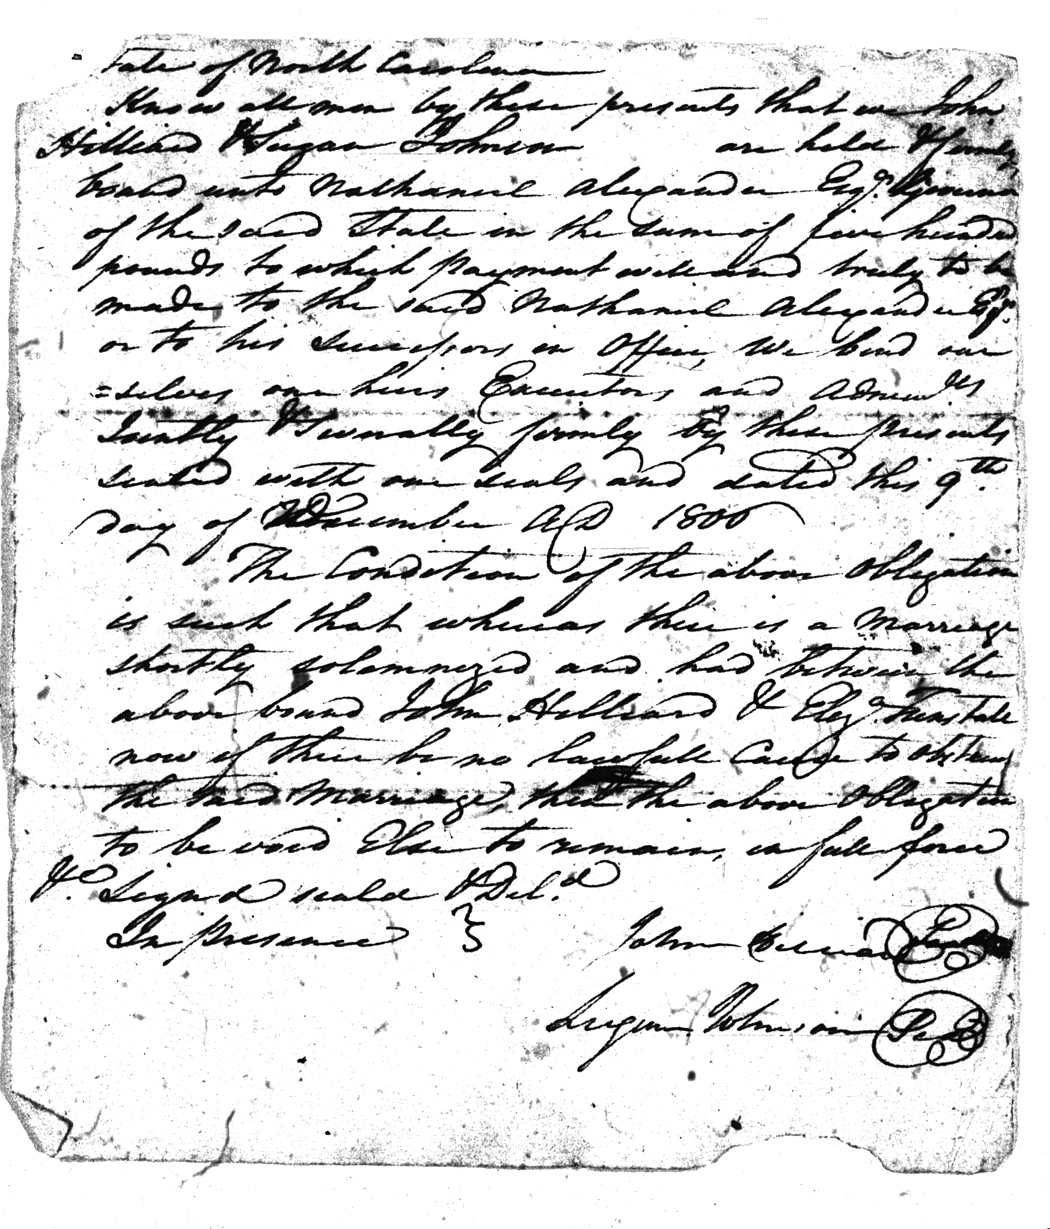 tate of North Carolina
Know all men by these presents that we John
Hilliard & Sugan Johnson are held & firmly
bound unto Nathaniel Alexander Esqr. Governor
of the said State in the sum of five hundred
pounds to which payment well and truly to be
made to the said Nathaniel Alexander Esqr.
or to his Successors in Office, We bind our
=selves our heirs Executors and Admin.rs
Jointly & Severally firmly by these presents
sealed with our seals and dated this 9th.
day of December AD 1806
The Condition of the above Obligation
is such that whereas there is a Marriage
shortly solemnized and had between the
above bound John Hilliard & Eliza Tunstall
now if there be no lawfull Cause to obstruct
the said Marriage, then the above Obligation
to be void Else to remain, in full force
&c. Signd seald & Deld.
In presence }
John Hilliard Seal
Sugan Johnson Seal